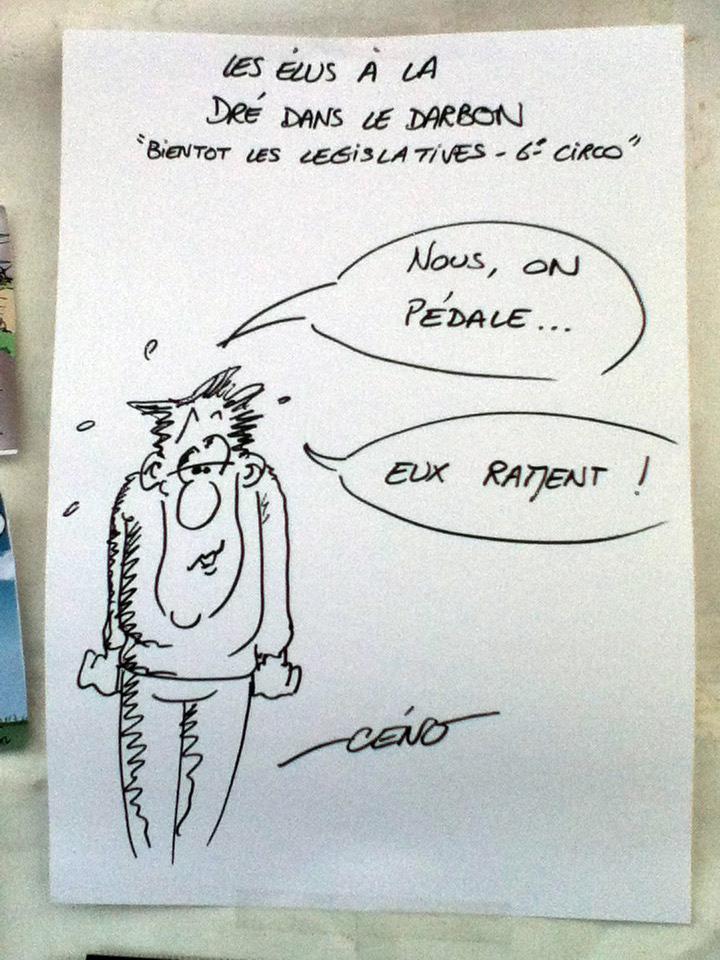 LES ÉLUS À LA
DRÉ DANS LE DARBON
"BIENTOT LES LEGISLATIVES - 6e CIRCO"
NOUS, ON
PÉDALE...
EUX RAMENT !
CÉNO